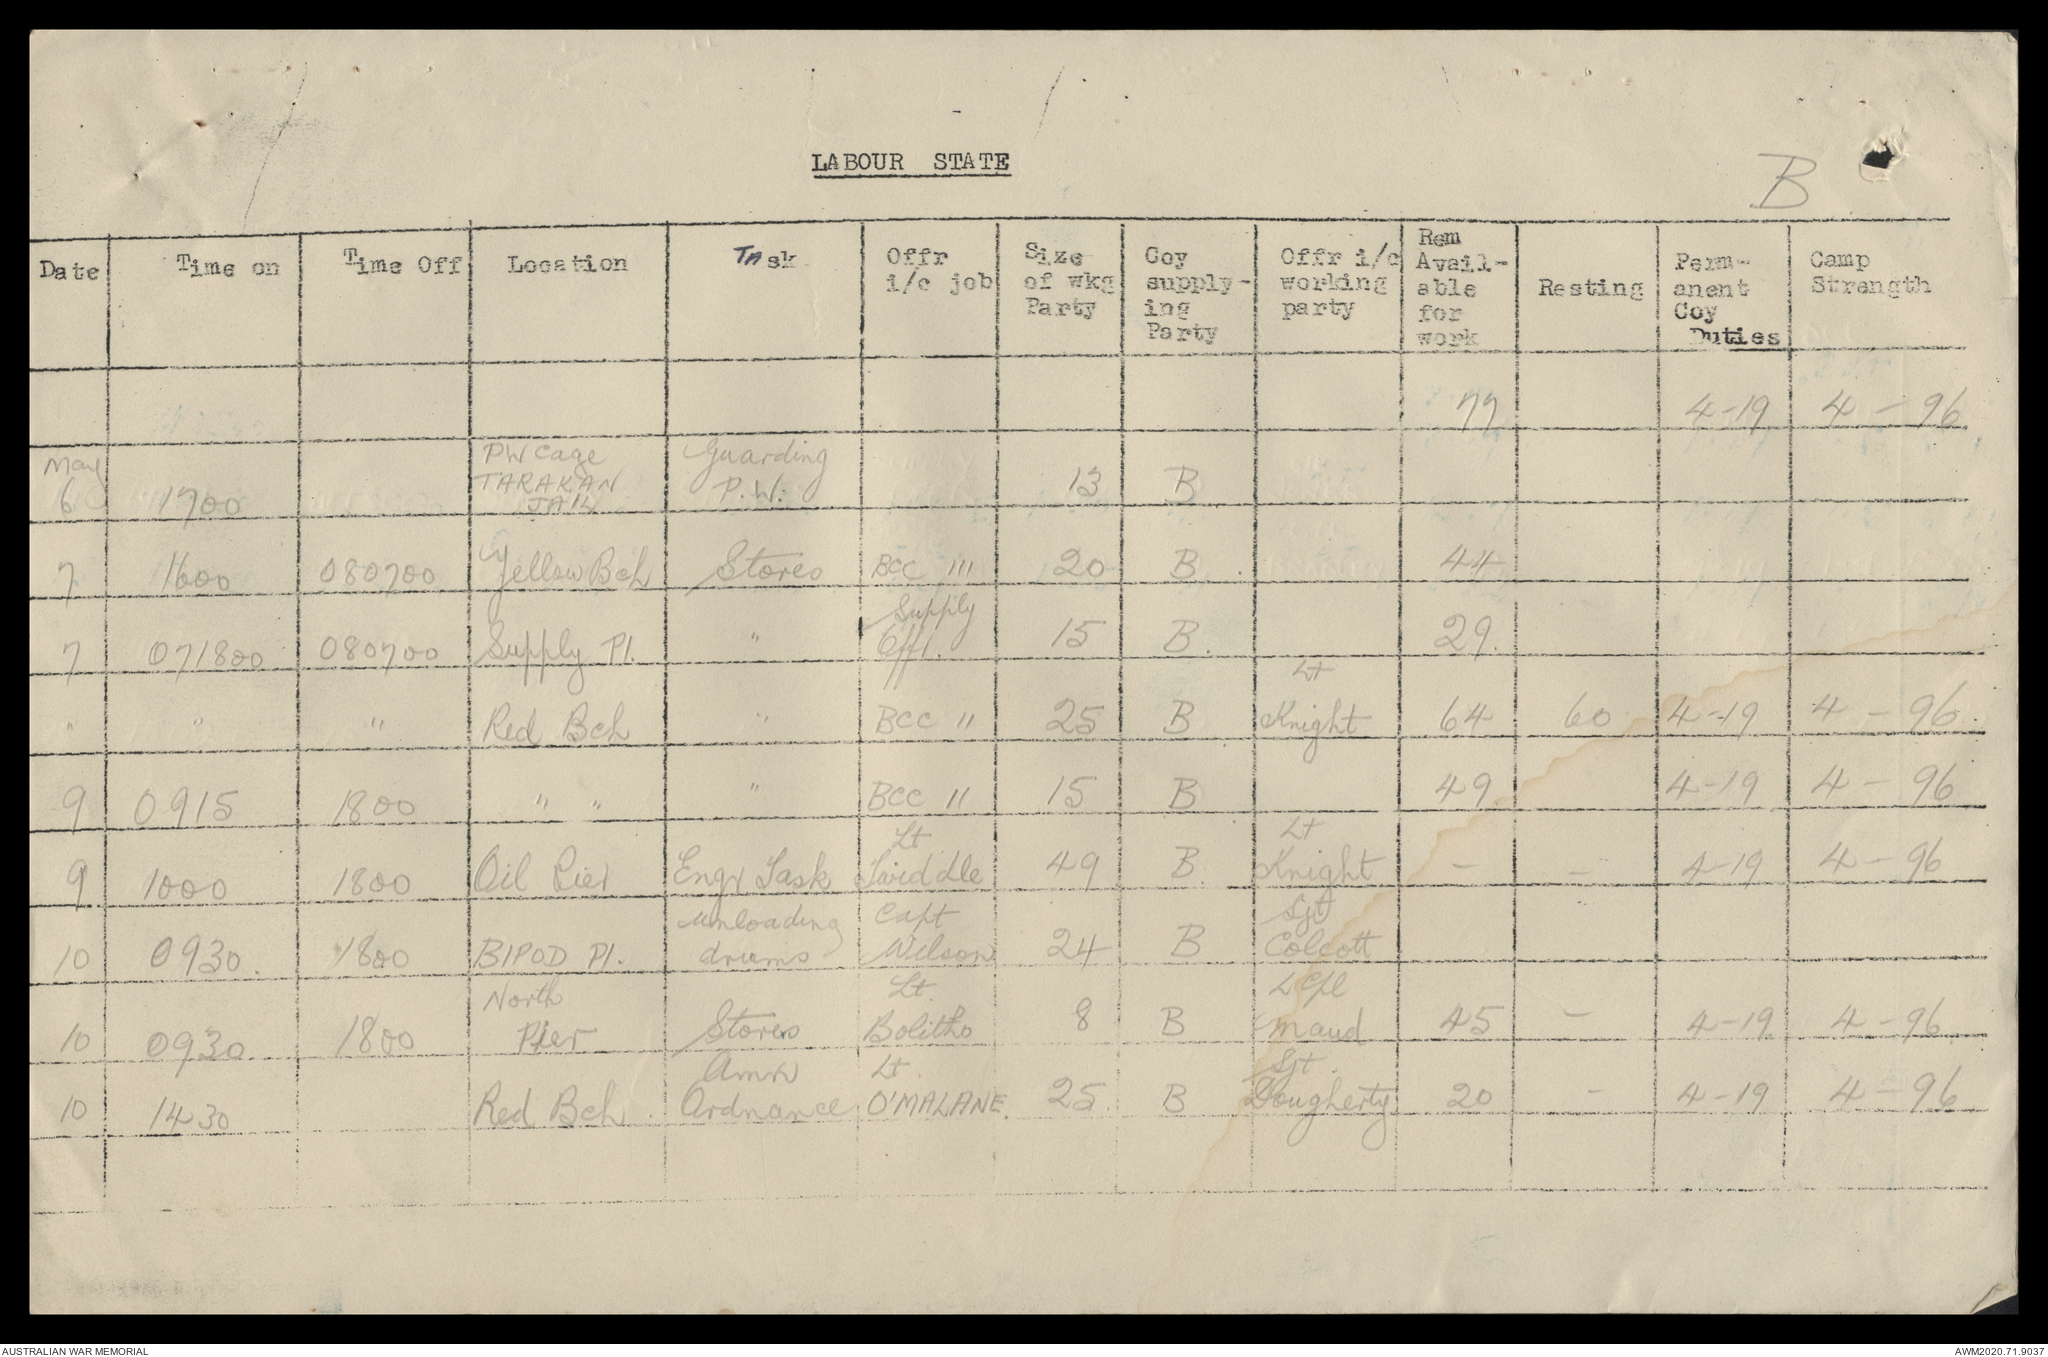 LABOUR STATE
B
Date | Time on | Time Off | Location | Task | Offr i/c job | Size of wkg Party | Coy supply-ing Party | Offr i/c working party | Rem Avail-able for work | Resting | Perm-anent Coy Duties | Camp Strength
77 | 4-19 | 4 - 96
May 6 | 1700 | PW Cage TARAKAN JAIL | Guarding P.W. | 13 | B
7 | 1600 | 080700 | Yellow Bch | Stores | BCC 111 | 20 | B | 44
7 | 071800 | 080700 | Supply Pl. | " | Supply Offr. | 15 | B. | 29.
" | " | " | Red Bch | " | BCC 11 | 25 | B | Lt Knight | 64 | 60 | 4-19 | 4 - 96.
9 | 0915 | 1800 | " " | " | BCC 11 | 15 | B | 49 | 4-19 | 4 - 96
9 | 1000 | 1800 | Oil Pier | Engr Task | Lt | 49 | B | Lt Knight | - | - | 4-19 | 4 - 96
10 | 0930. | 1800 | BIPOD Pl. | Unloading drums | Capt Wilson | 24 | B | Sjt Colcott
10 | 0930 | 1800 | North Pier | Stores | Lt. Bolitho | 8 | B | L Cpl Maud | 45 | - | 4-19. | 4 - 96
10 | 1430 | Red Bch. | Amn Ordnance | Lt. O'MALANE. | 25 | B | Sjt. Dougherty | 20 | - | 4-19 | 4 - 96
AUSTRALIAN WAR MEMORIAL
AWM2020.71.9037